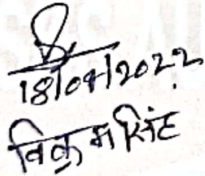 18/04/2022
विक्रम सिंह